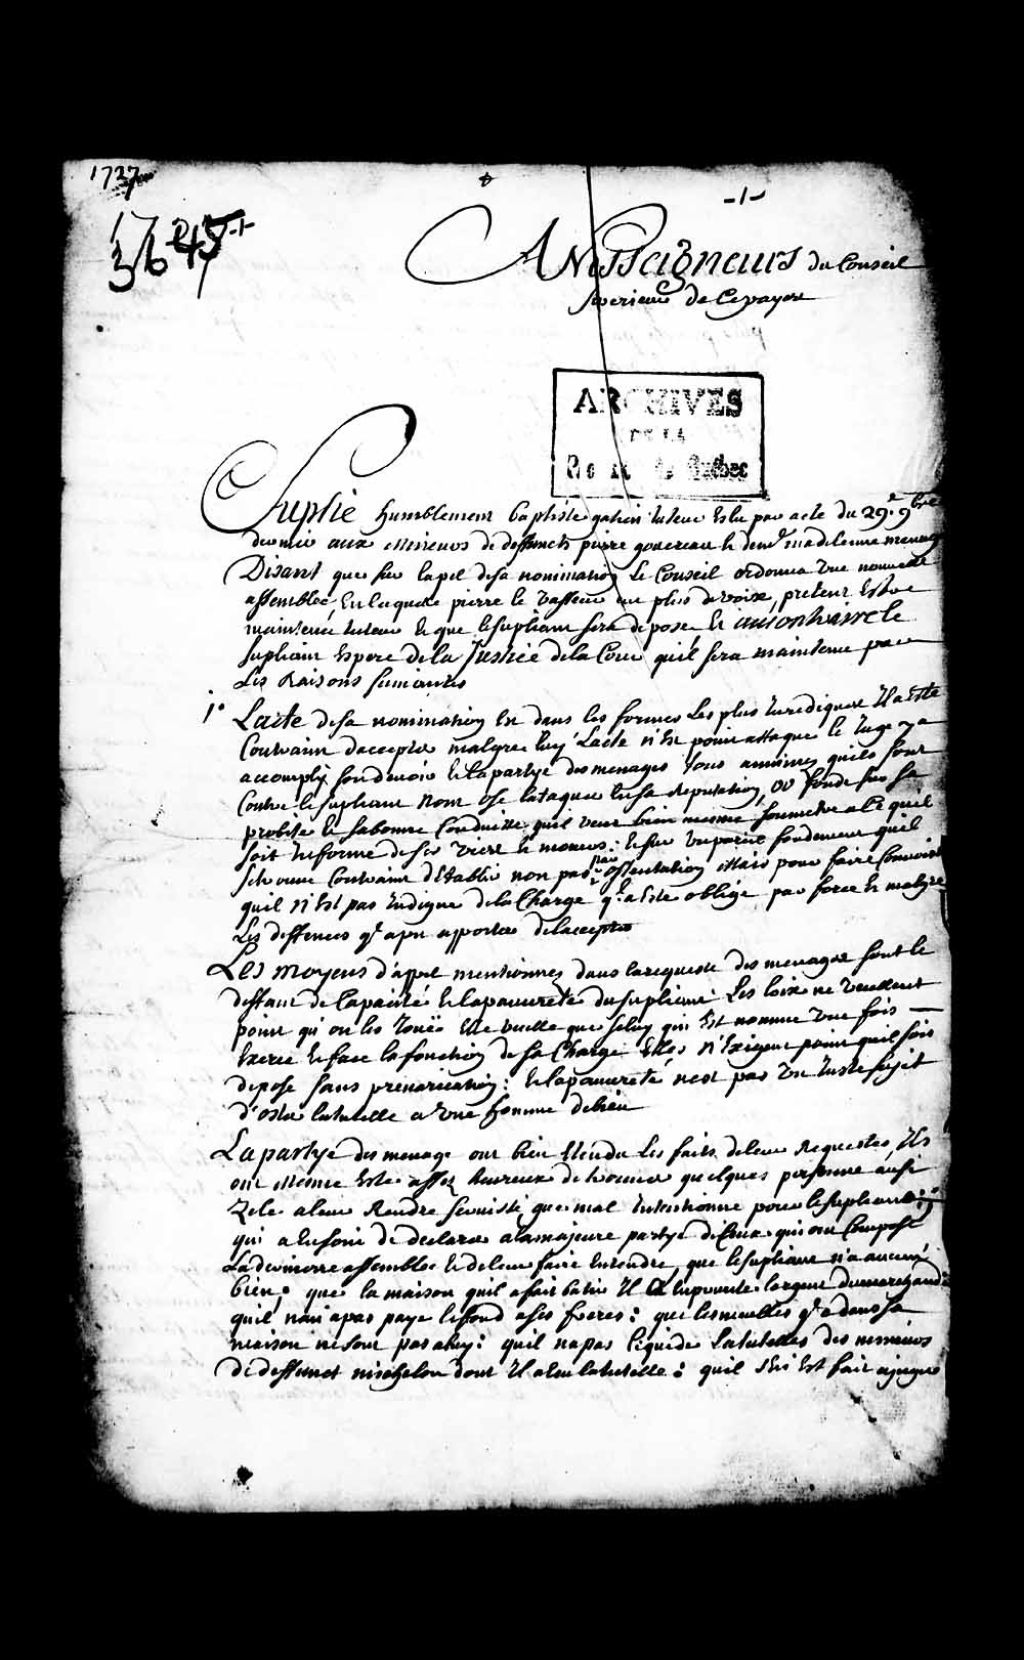 1727
-1-
A Nosseigneurs du Conseil
Superieur de Ce payex
ARCHIVES
DE LA
Québec
Suplie humblement baptiste gatien tuteur Eslu par acte du 29e 9bre
dernier aux mineurs de deffuncts pierre gouereau et deme madelenne menage
Disant que sur lapel de sa nomination Le Conseil ordonna Une nouvelle
assemblée, En laquelle pierre le Vasseur eu plus de voix, pretent Estre
maintenu tuteur Et que le supliant sera deposé Et au contraire le
supliant Espere de la Justice de la Cour qu'il sera maintenu par
Les Raisons suiuantes
1o Lacte de sa nomination Est dans les formes Les plus Juridiques Il a Esté
Contraint daccepter malgré luy Lacte n'Est point attaqué le Juge y a
accomply son deuoir Et la partye des menages tous animez quils sont
Contre le supliant nont osé lataquer En sa Reputation, ou fondé sur sa
probité Et sa bonne Conduitte quil veut bien mesme soumettre a Ce quil
soit Informé de ses vie et moeurs: Et sur un pareil fondement quil
se trouve Contraint d'Etablir non pas par ostentation Mais pour faire Connoistre
quil n'Est pas Indigne de la Charge q'il a Esté obligé par force Et malgré
Les deffences q'il a pu apporter de laccepter
Les moyens d'appel mentionnez dans la requeste des menages sont le
deffaut de Capacité Et la pauureté du supliant Les loix ne veullent
point qu'on les Elle veulle que seluy qui Est nommé une fois —
Exerce Et face la fonction de sa Charge Elles n'Exigent point quil soit
deposé sans preuarication: Et la pauureté nest pas Un Juste sujet
d'oster la tutelle a Une homme de bien
La partye des menage ont bien Etendu Les faits de leur Requestes, Ils
ont mesme Esté assez heureux de trouuer quelques personne aussi
Zelé a leur Rendre seruisse que mal Intentionné pour le supliant:
qui a Eu soin de declarer a la majeure partye de Ceux qui ont Composé
La derniere assemblée Et de leur faire Entendre, que le supliant n'a aucuns
bien; que la maison quil a fait batir Il a Emprunté largent
quil nan a pas payé le fond a ses freres: que les meubles q'il a dans sa
maison ne sont pas a luy: quil na pas liquidé La tutelles des mineurs
de deffunct dont Il a Eu la tutelle: quil s'En Est fait ajuger